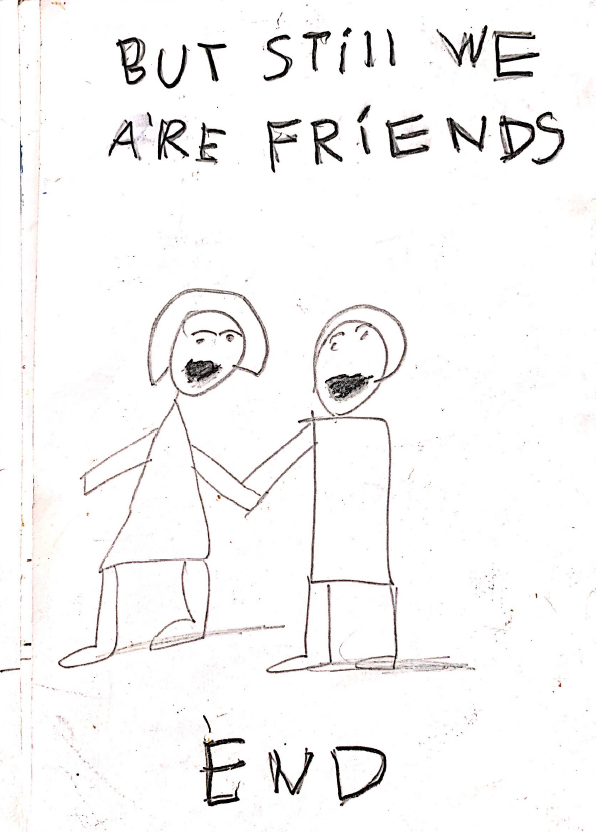 BUT STill WE
ARE FRiENDS
END